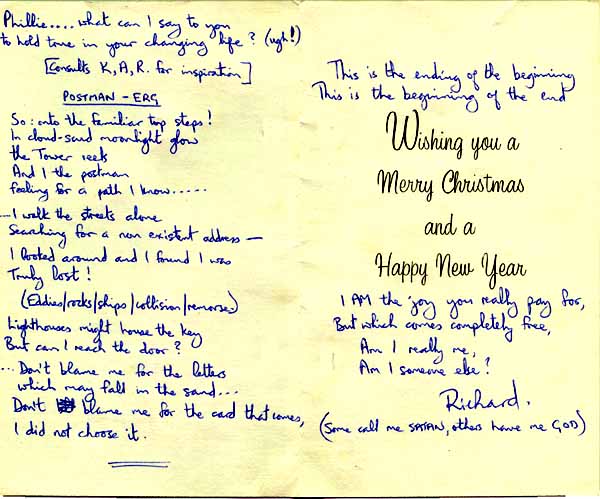 Phillie.... what can I say to you
to hold true in your changing life? (ugh!)
[Consults K, A, R. for inspiration]
POSTMAN - ERG
So: onto the familiar top steps!
In cloud-sand moonlight glow
the Tower reels
And I the postman
feeling for a path I know.....
...I walk the streets alone
Searching for a non existent address —
I looked around and I found I was
Truly lost!
(Eddies/rocks/ships/collision/remorse)
Lighthouses might house the key
But can I reach the door?
...Don't blame me for the letters
which may fall in the sand...
Don't blame me for the card that comes,
I did not choose it.
This is the ending of the beginning
This is the beginning of the end
Wishing you a
Merry Christmas
and a
Happy New Year
I AM the joy you really pay for,
But which comes completely free,
Am I really me,
Am I someone else?
Richard.
(Some call me SATAN, others have me GOD)